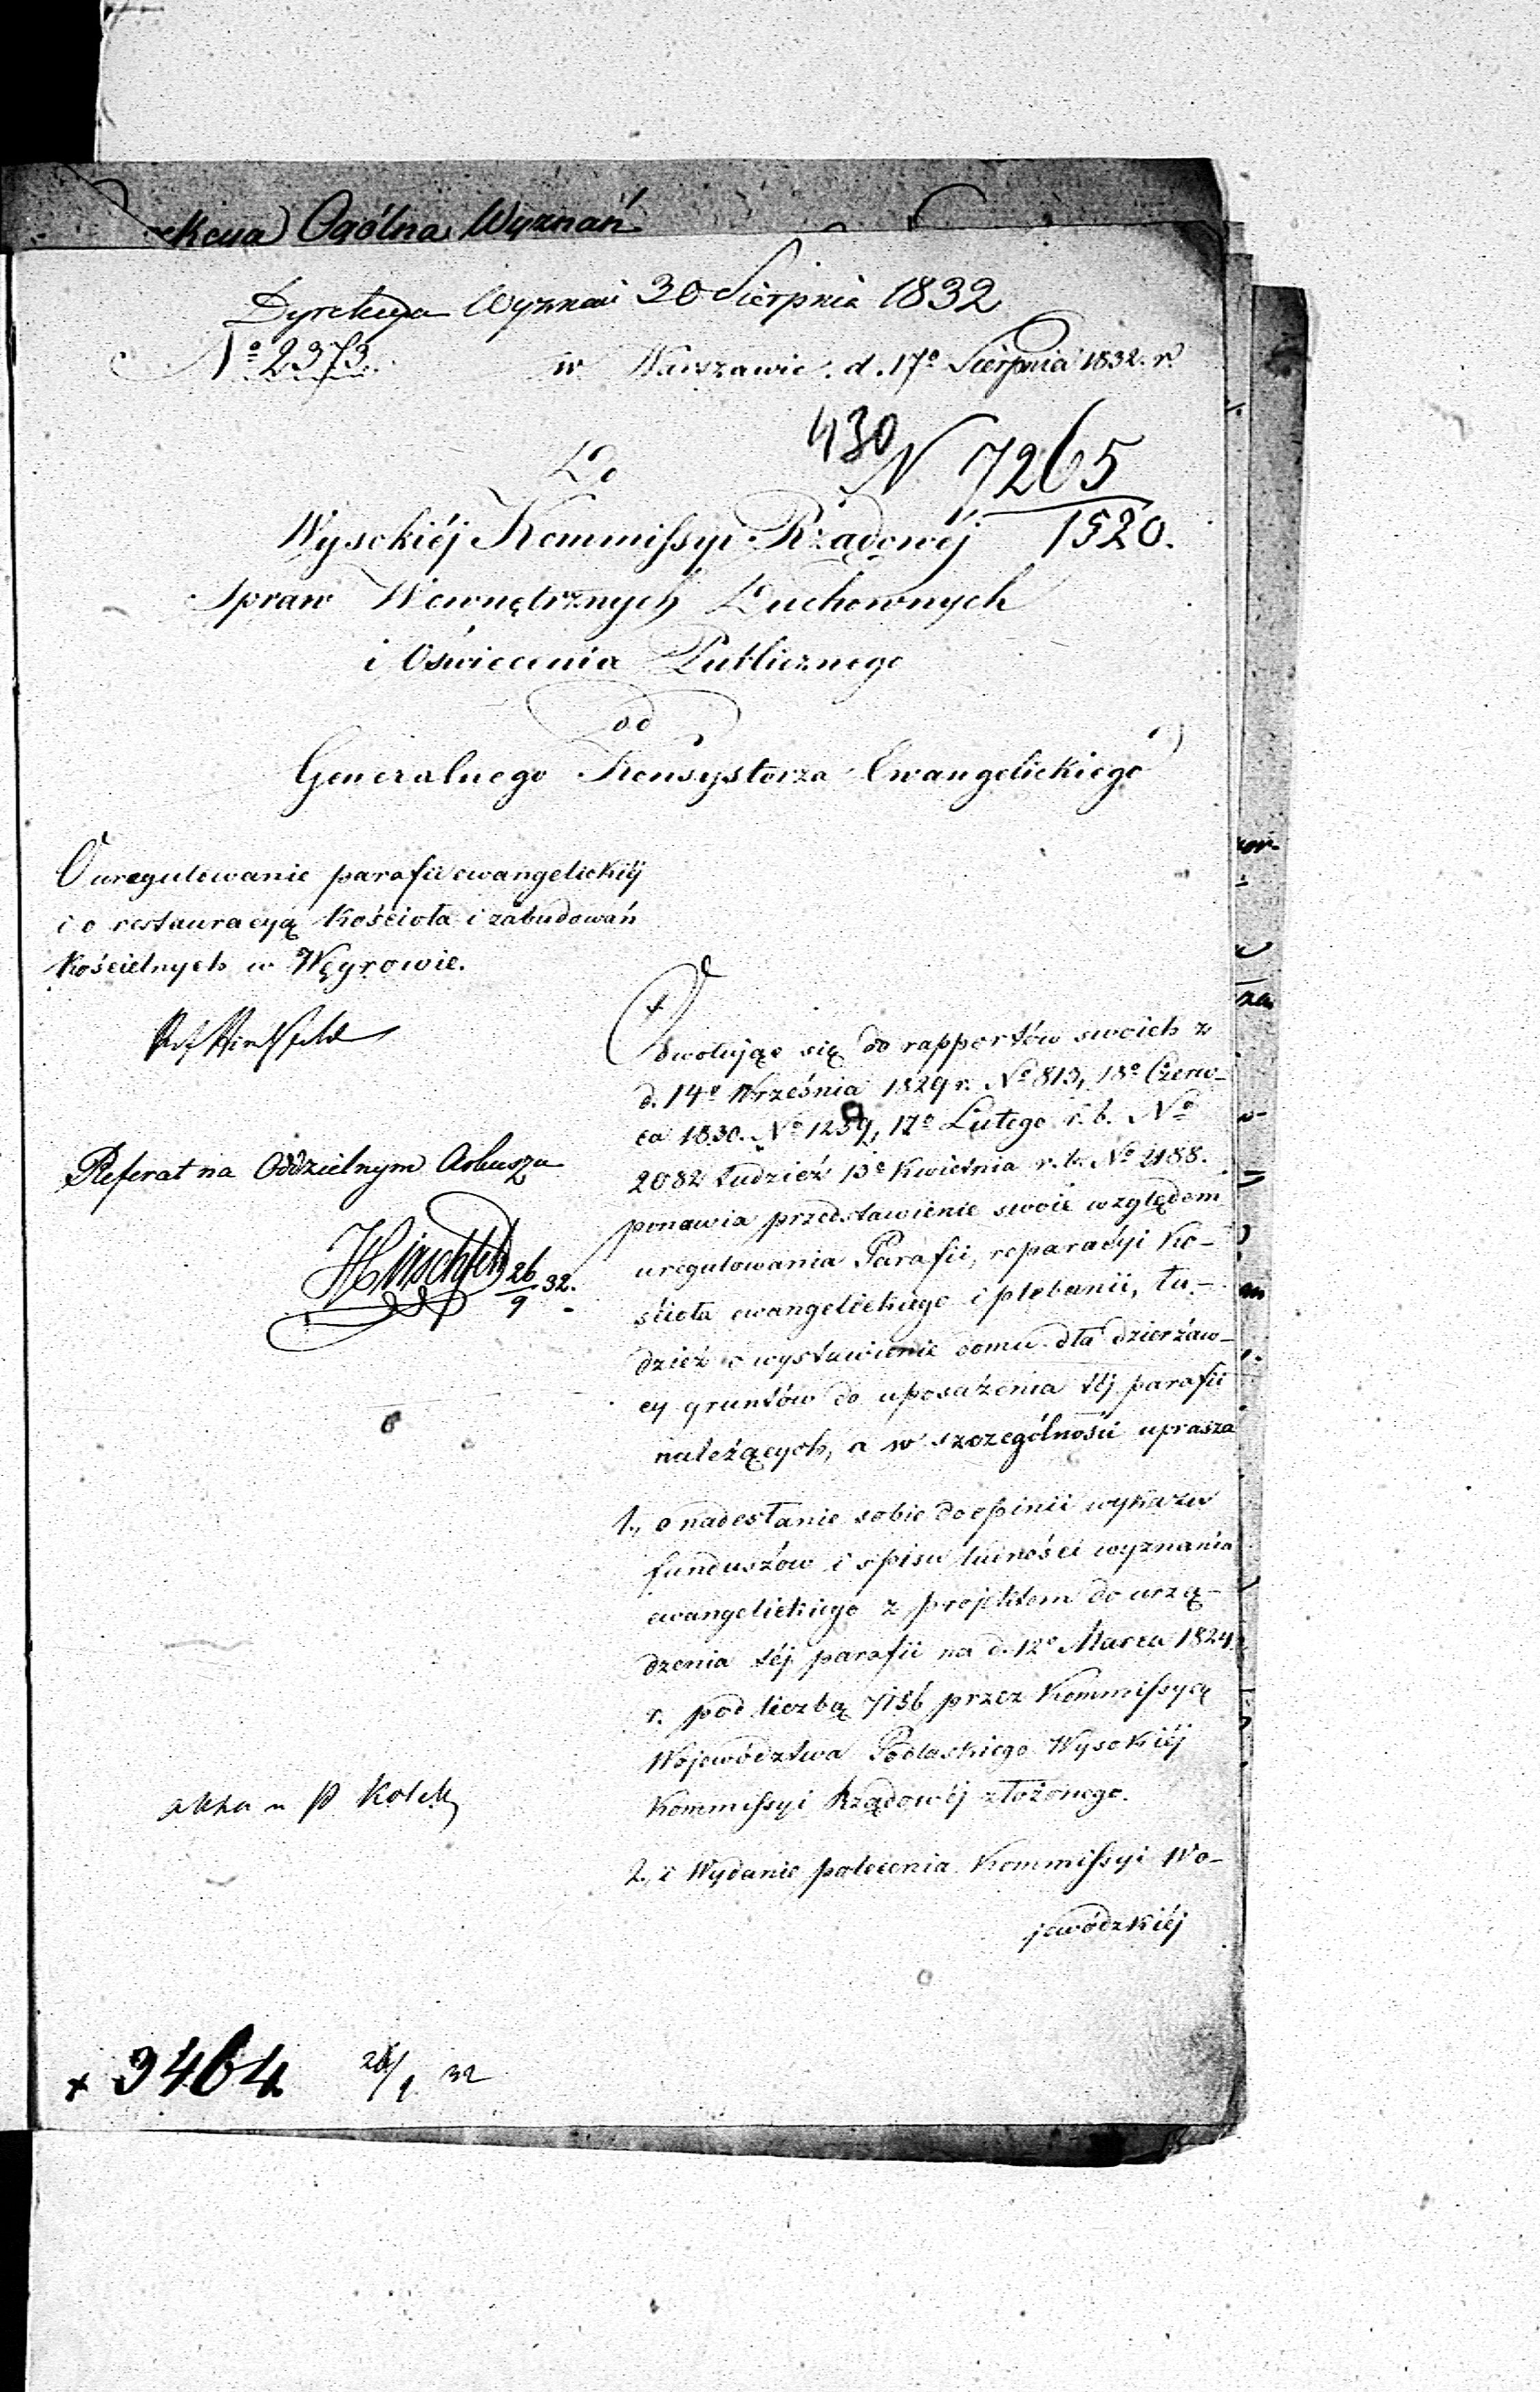 kcya Ogólna Wyznań
Dyrekcya Wyznań 30 Sierpnia 1832
Nº 2373.
w Warszawie. d. 17º Sierpnia 1832. r.
430
N 7265
1520.
Do
Wysokiéj Kommissyi Rządowéj
Spraw Wewnętrznych Duchownych
i Oświecenia Publicznego
od
Generalnego Konsystorza Ewangelickiego
O uregulowanie parafii ewangelickiéj
i o restauracyą Kościoła i zabudowań
Kościelnych w Węgrowie.
Odwołując się do rapportów swoich z
d. 14º Września 1829 r. Nº 813, 18º Czerw-
ca 1830. Nº 1259, 17º Lutego r. b. Nº
2082 tudzież 13º Kwietnia r. b. Nº 2188.
ponawia przedstawienie swoie względem
uregulowania Parafii, reparacyi Ko-
ścioła ewangelickiego i plebanii, tu-
dzież o wystawienie domu dla dzierżaw-
cy gruntów do uposażenia téj parafii
należących, a w szczególności uprasza
1., o nadesłanie sobie do opinii wykazu
funduszów i spisu ludności wyznania
ewangelickiego z projektem do urzą-
dzenia téj parafii na d. 12º Marca 1824
r. pod liczbą 7156 przez Kommissyą
Województwa Podlaskiego Wysokiéj
Kommissyi Rządowéj złożonego.
2., i Wydanie polecenia Kommissyi Wo-
jewódzkiéj
Referat na Oddzielnym Arkuszu
Hirschfeld 26/9 32.
+ 3464 26/9 32